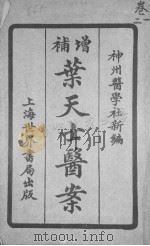 卷一
二
神州醫學社新編
增補
葉天士醫案
上海世界書局出版